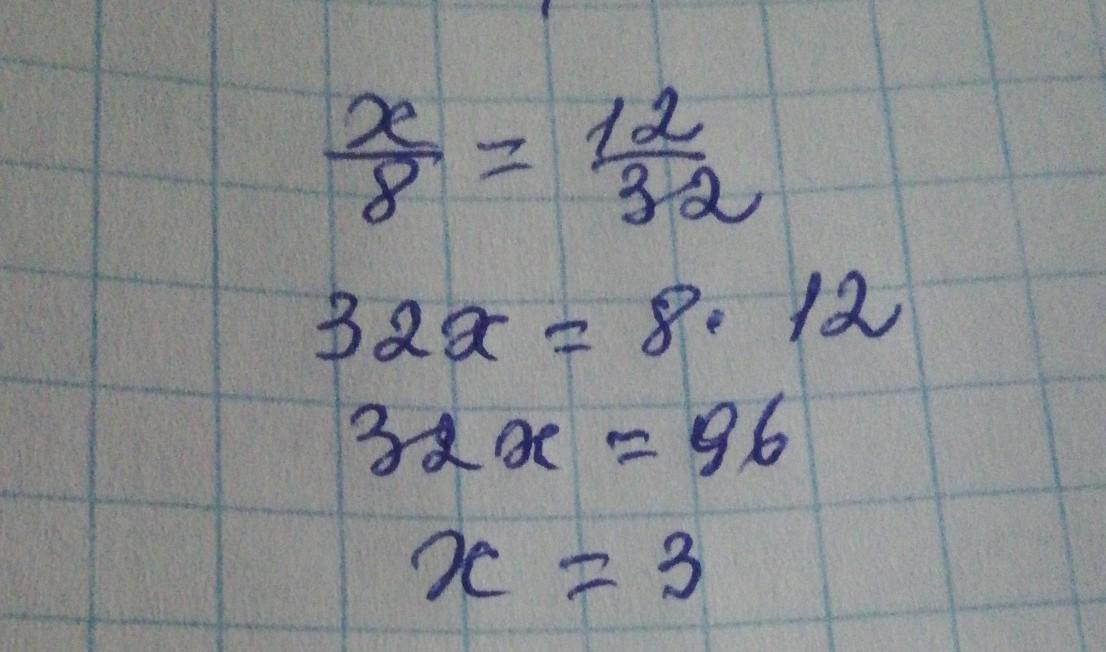 x/8 = 12/32
32x = 8 · 12
32x = 96
x = 3